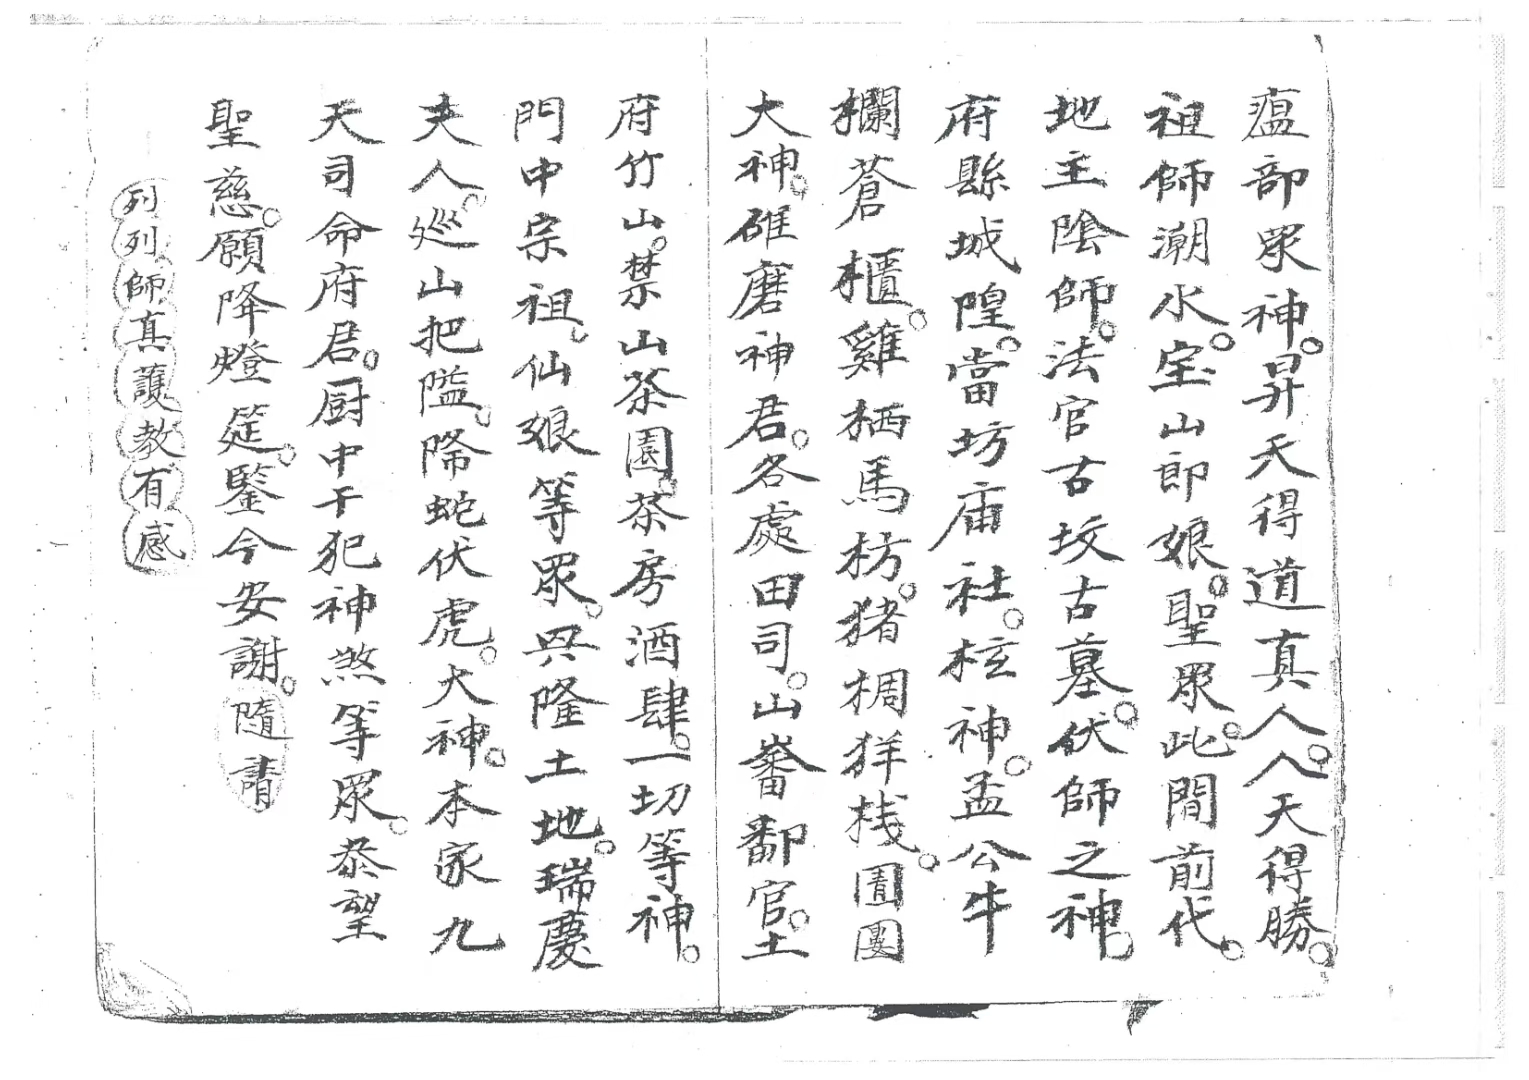 瘟部眾神。昇天得道真人。人天得勝。
祖師潮水。宝山郎娘。聖眾。此間前代。
地主陰師。法官古坟古墓。伏師之神。
府縣城隍。當坊庙社。枟神。孟公牛
欄蒼櫃。雞栖馬枋。猪椆羊栈。圊圂
大神。碓磨神君。各處田司。山畨鄱官。土
府竹山。禁山茶園。茶房酒肆。一切等神。
門中宗祖。仙娘等眾。興隆土地。瑞慶
夫人。巡山把隘。降蛇伏虎。大神。本家九
天司命府君。厨中干犯神煞等眾。恭望
聖慈。願降燈筵。鑒今安謝。隨請
列列師真護教有感